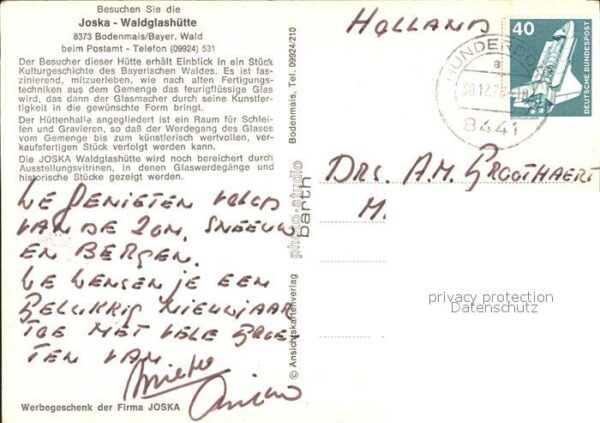 Besuchen Sie die
Joska - Waldglashütte
8373 Bodenmais/Bayer. Wald
beim Postamt - Telefon (09924) 531
Der Besucher dieser Hütte erhält Einblick in ein Stück
Kulturgeschichte des Bayerischen Waldes. Es ist fas-
zinierend, mitzuerleben, wie nach alten Fertigungs-
techniken aus dem Gemenge das feurigflüssige Glas
wird, das dann der Glasmacher durch seine Kunstfer-
tigkeit in die gewünschte Form bringt.
Der Hüttenhalle angegliedert ist ein Raum für Schlei-
fen und Gravieren, so daß der Werdegang des Glases
vom Gemenge bis zum künstlerisch wertvollen, ver-
kaufsfertigen Stück verfolgt werden kann.
Die JOSKA Waldglashütte wird noch bereichert durch
Ausstellungsvitrinen, in denen Glaswerdegänge und
historische Stücke gezeigt werden.
WE GENIETEN VOLOP
VAN DE ZON, SNEEUW
EN BERGEN.
WE WENSEN JE EEN
GELUKKIG NIEUWJAAR
TOE MET VELE GROE-
TEN VAN
Mieke
Werbegeschenk der Firma JOSKA
© Ansichtskartenverlag photo-studio barth Bodenmais, Tel. 09924/210
HOLLAND
40
DEUTSCHE BUNDESPOST
8441
DRS. A.M. GROOTHAERT
M.
privacy protection
Datenschutz